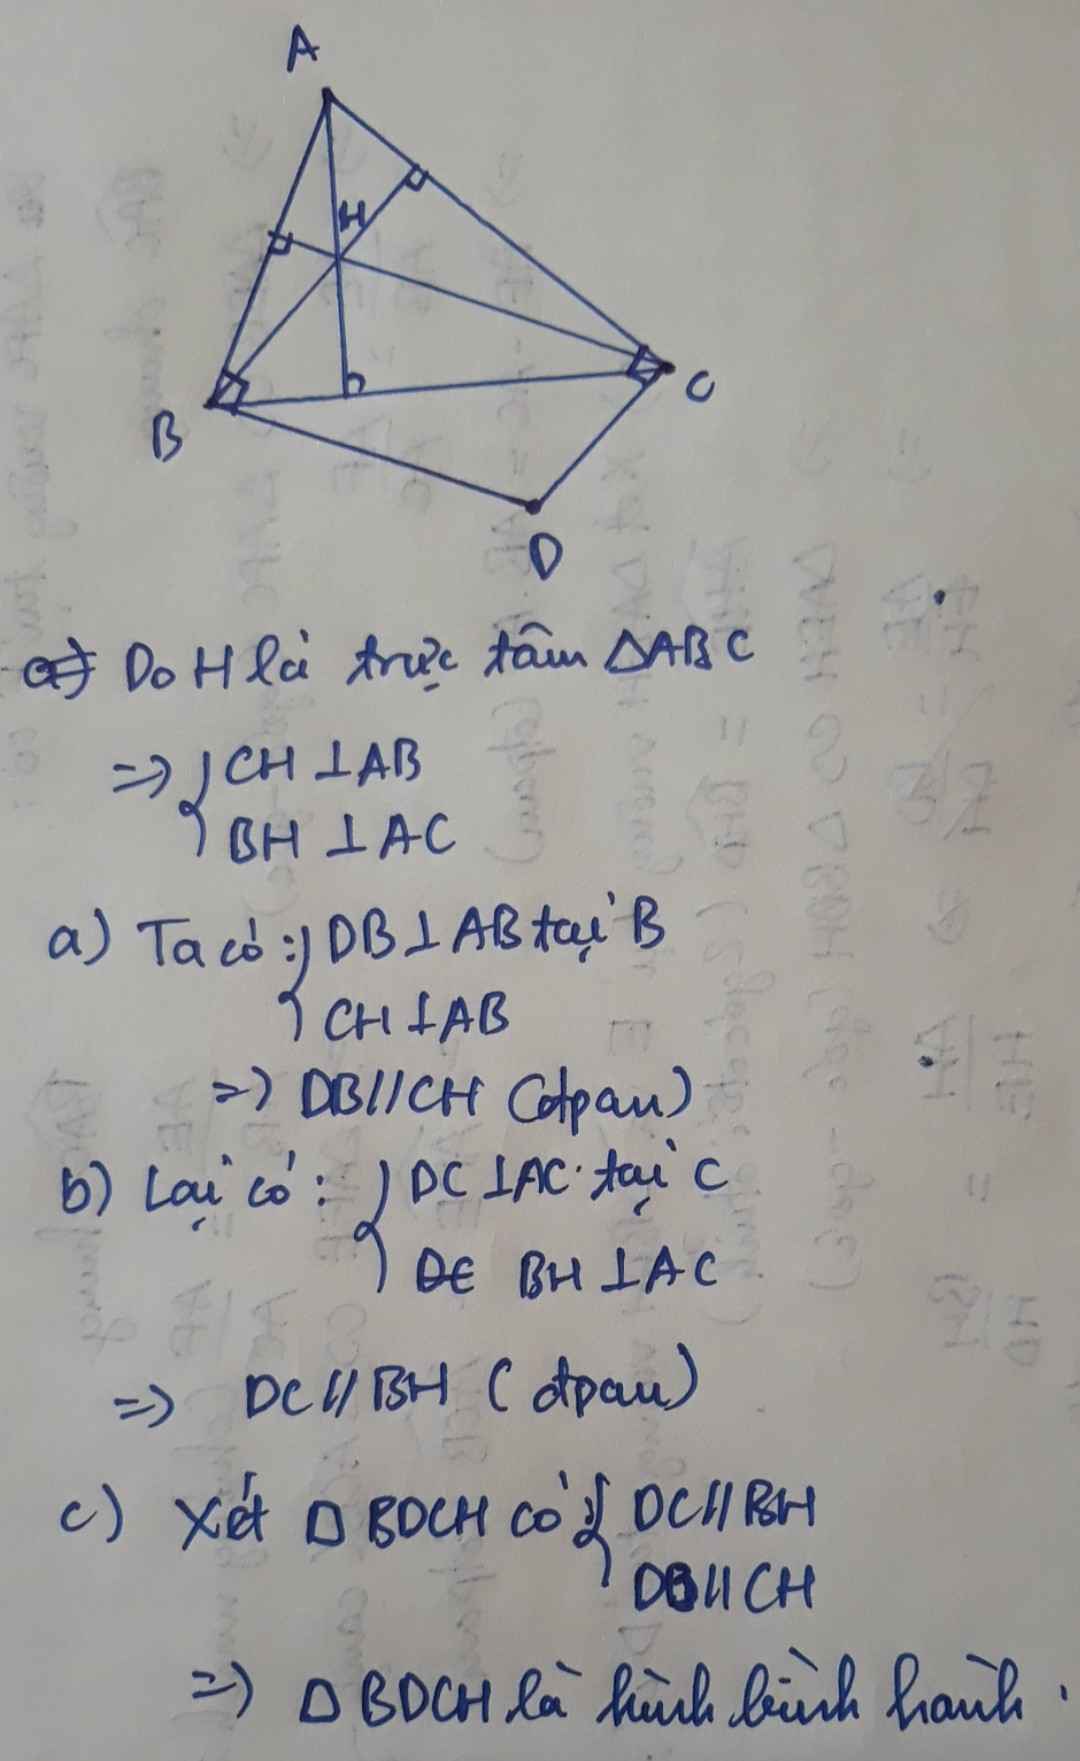 A
H
B
C
D
a) Do H là trực tâm ΔABC
=> { CH ⊥ AB
BH ⊥ AC
a) Ta có: { DB ⊥ AB tại B
CH ⊥ AB
=> DB // CH (đpcm)
b) Lại có: { DC ⊥ AC tại C
BH ⊥ AC
=> DC // BH (đpcm)
c) Xét □ BDCH có: { DC // BH
DB // CH
=> □ BDCH là hình bình hành.